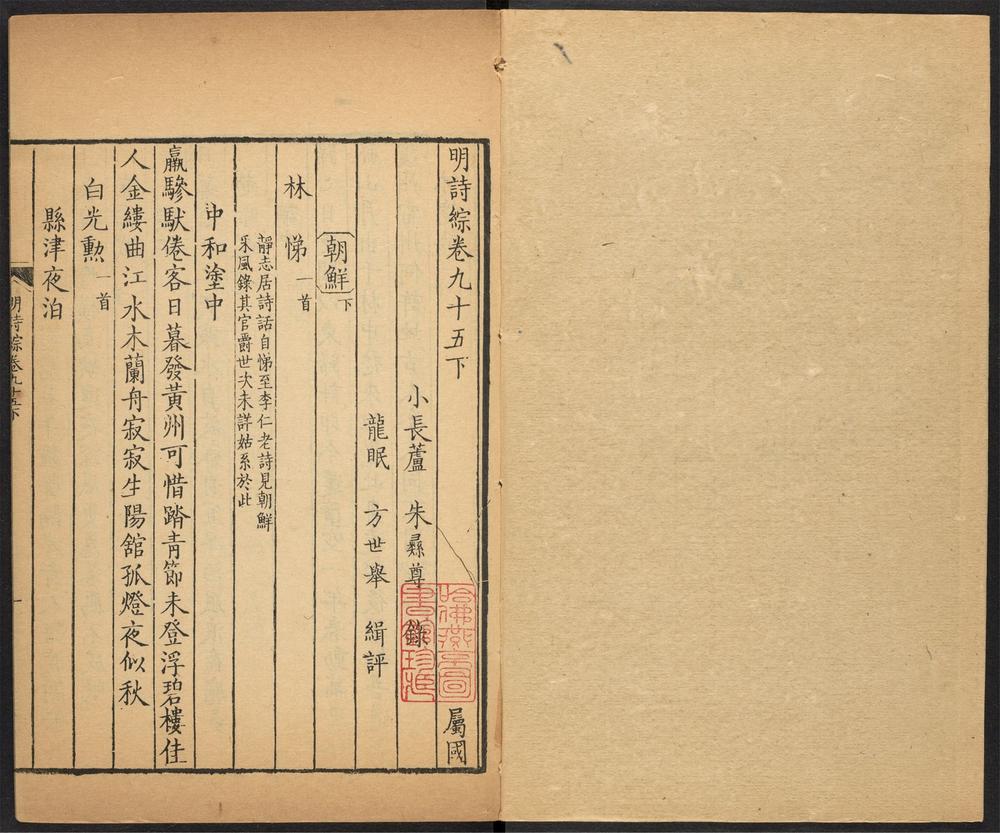 明詩綜卷九十五下 屬國
小長蘆 朱彝尊 錄
龍眠 方世舉 緝評
朝鮮 下
林悌 一首
靜志居詩話自悌至李仁老詩見朝鮮
采風錄其官爵世次未詳姑系於此
中和塗中
羸驂馱倦客日暮發黃州可惜踏青節未登浮碧樓佳
人金縷曲江水木蘭舟寂寂生陽舘孤燈夜似秋
白光勲 一首
縣津夜泊
明詩綜卷九十五下
哈佛燕京圖
書館珍藏